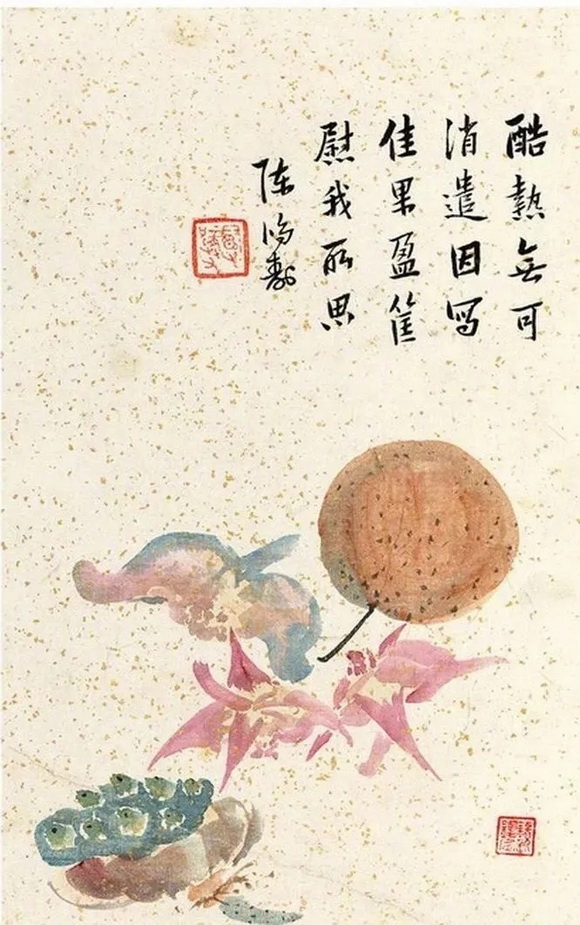 酷熱無可
消遣因寫
佳果盈筐
慰我所思
陈鸿壽